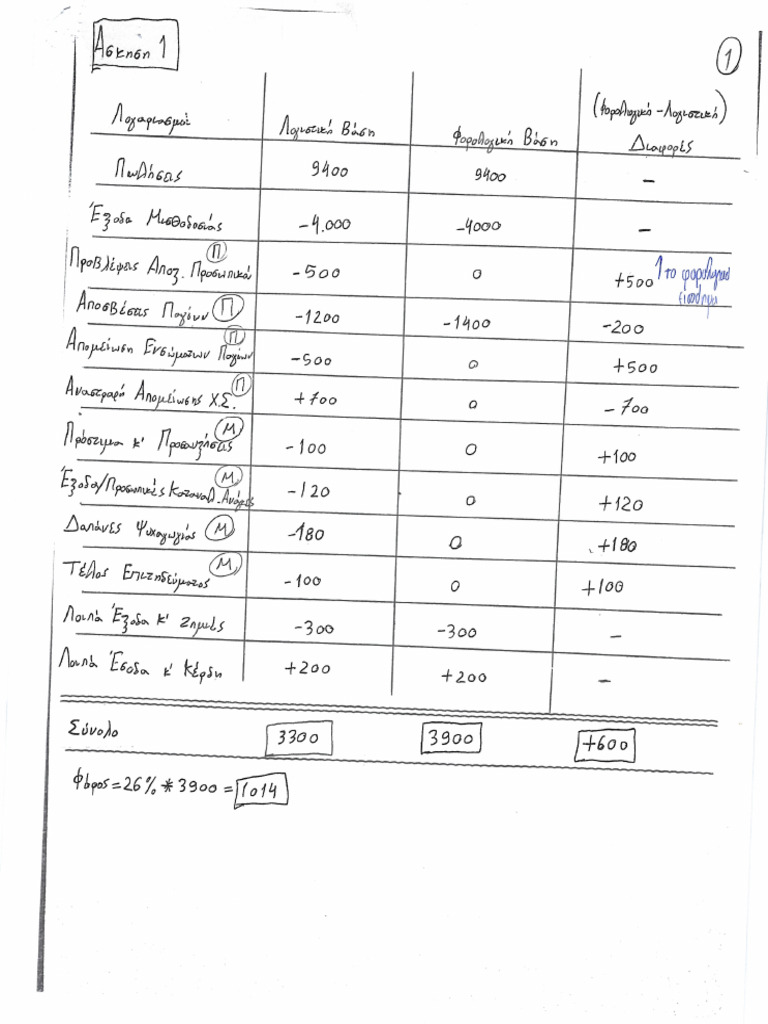 Άσκηση 1
1
Λογαριασμοί Λογιστική Βάση Φορολογική Βάση (Φορολογική-Λογιστική) Διαφορές
Πωλήσεις 9400 9400 -
Έξοδα Μισθοδοσίας -4.000 -4000 -
Προβλέψεις Αποζ. Προσωπικού Π -500 0 +500 ↑ το φορολογητέο εισόδημα
Αποσβέσεις Παγίων Π -1200 -1400 -200
Απομείωση Ενσώματων Παγίων Π -500 0 +500
Αναστροφή Απομείωσης Χ.Σ. Π +700 0 -700
Πρόστιμα κ' Προσαυξήσεις Μ -100 0 +100
Έξοδα/Προσωπικές Καταναλ. Ανάγκες Μ -120 0 +120
Δαπάνες Ψυχαγωγίας Μ -180 0 +180
Τέλος Επιτηδεύματος Μ -100 0 +100
Λοιπά Έξοδα κ' Ζημιές -300 -300 -
Λοιπά Έσοδα κ' Κέρδη +200 +200 -
Σύνολο 3300 3900 +600
Φόρος=26%*3900=1014